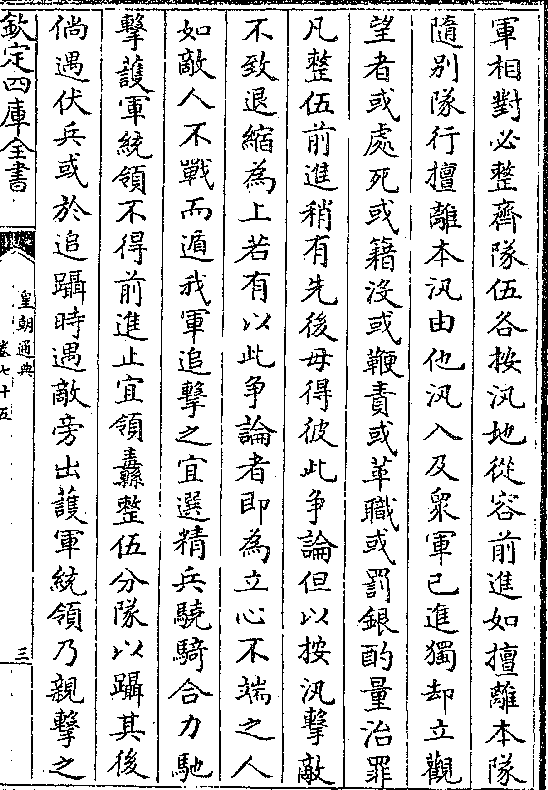 軍相對必整齊隊伍各按汛地從容前進如擅離本隊
隨别隊行擅離本汛由他汛入及衆軍已進獨却立觀
望者或處死或籍沒或鞭責或革職或罰銀酌量治罪
凡整伍前進稍有先後毋得彼此争論但以按汛擊敵
不致退縮為上若有以此争論者即為立心不端之人
如敵人不戰而遁我軍追擊之宜選精兵驍騎合力馳
擊護軍統領不得前進止宜領纛整伍分隊以躡其後
倘遇伏兵或於追躡時遇敵旁出護軍統領乃親擊之
欽定四庫全書
皇朝通典
卷七十五
三